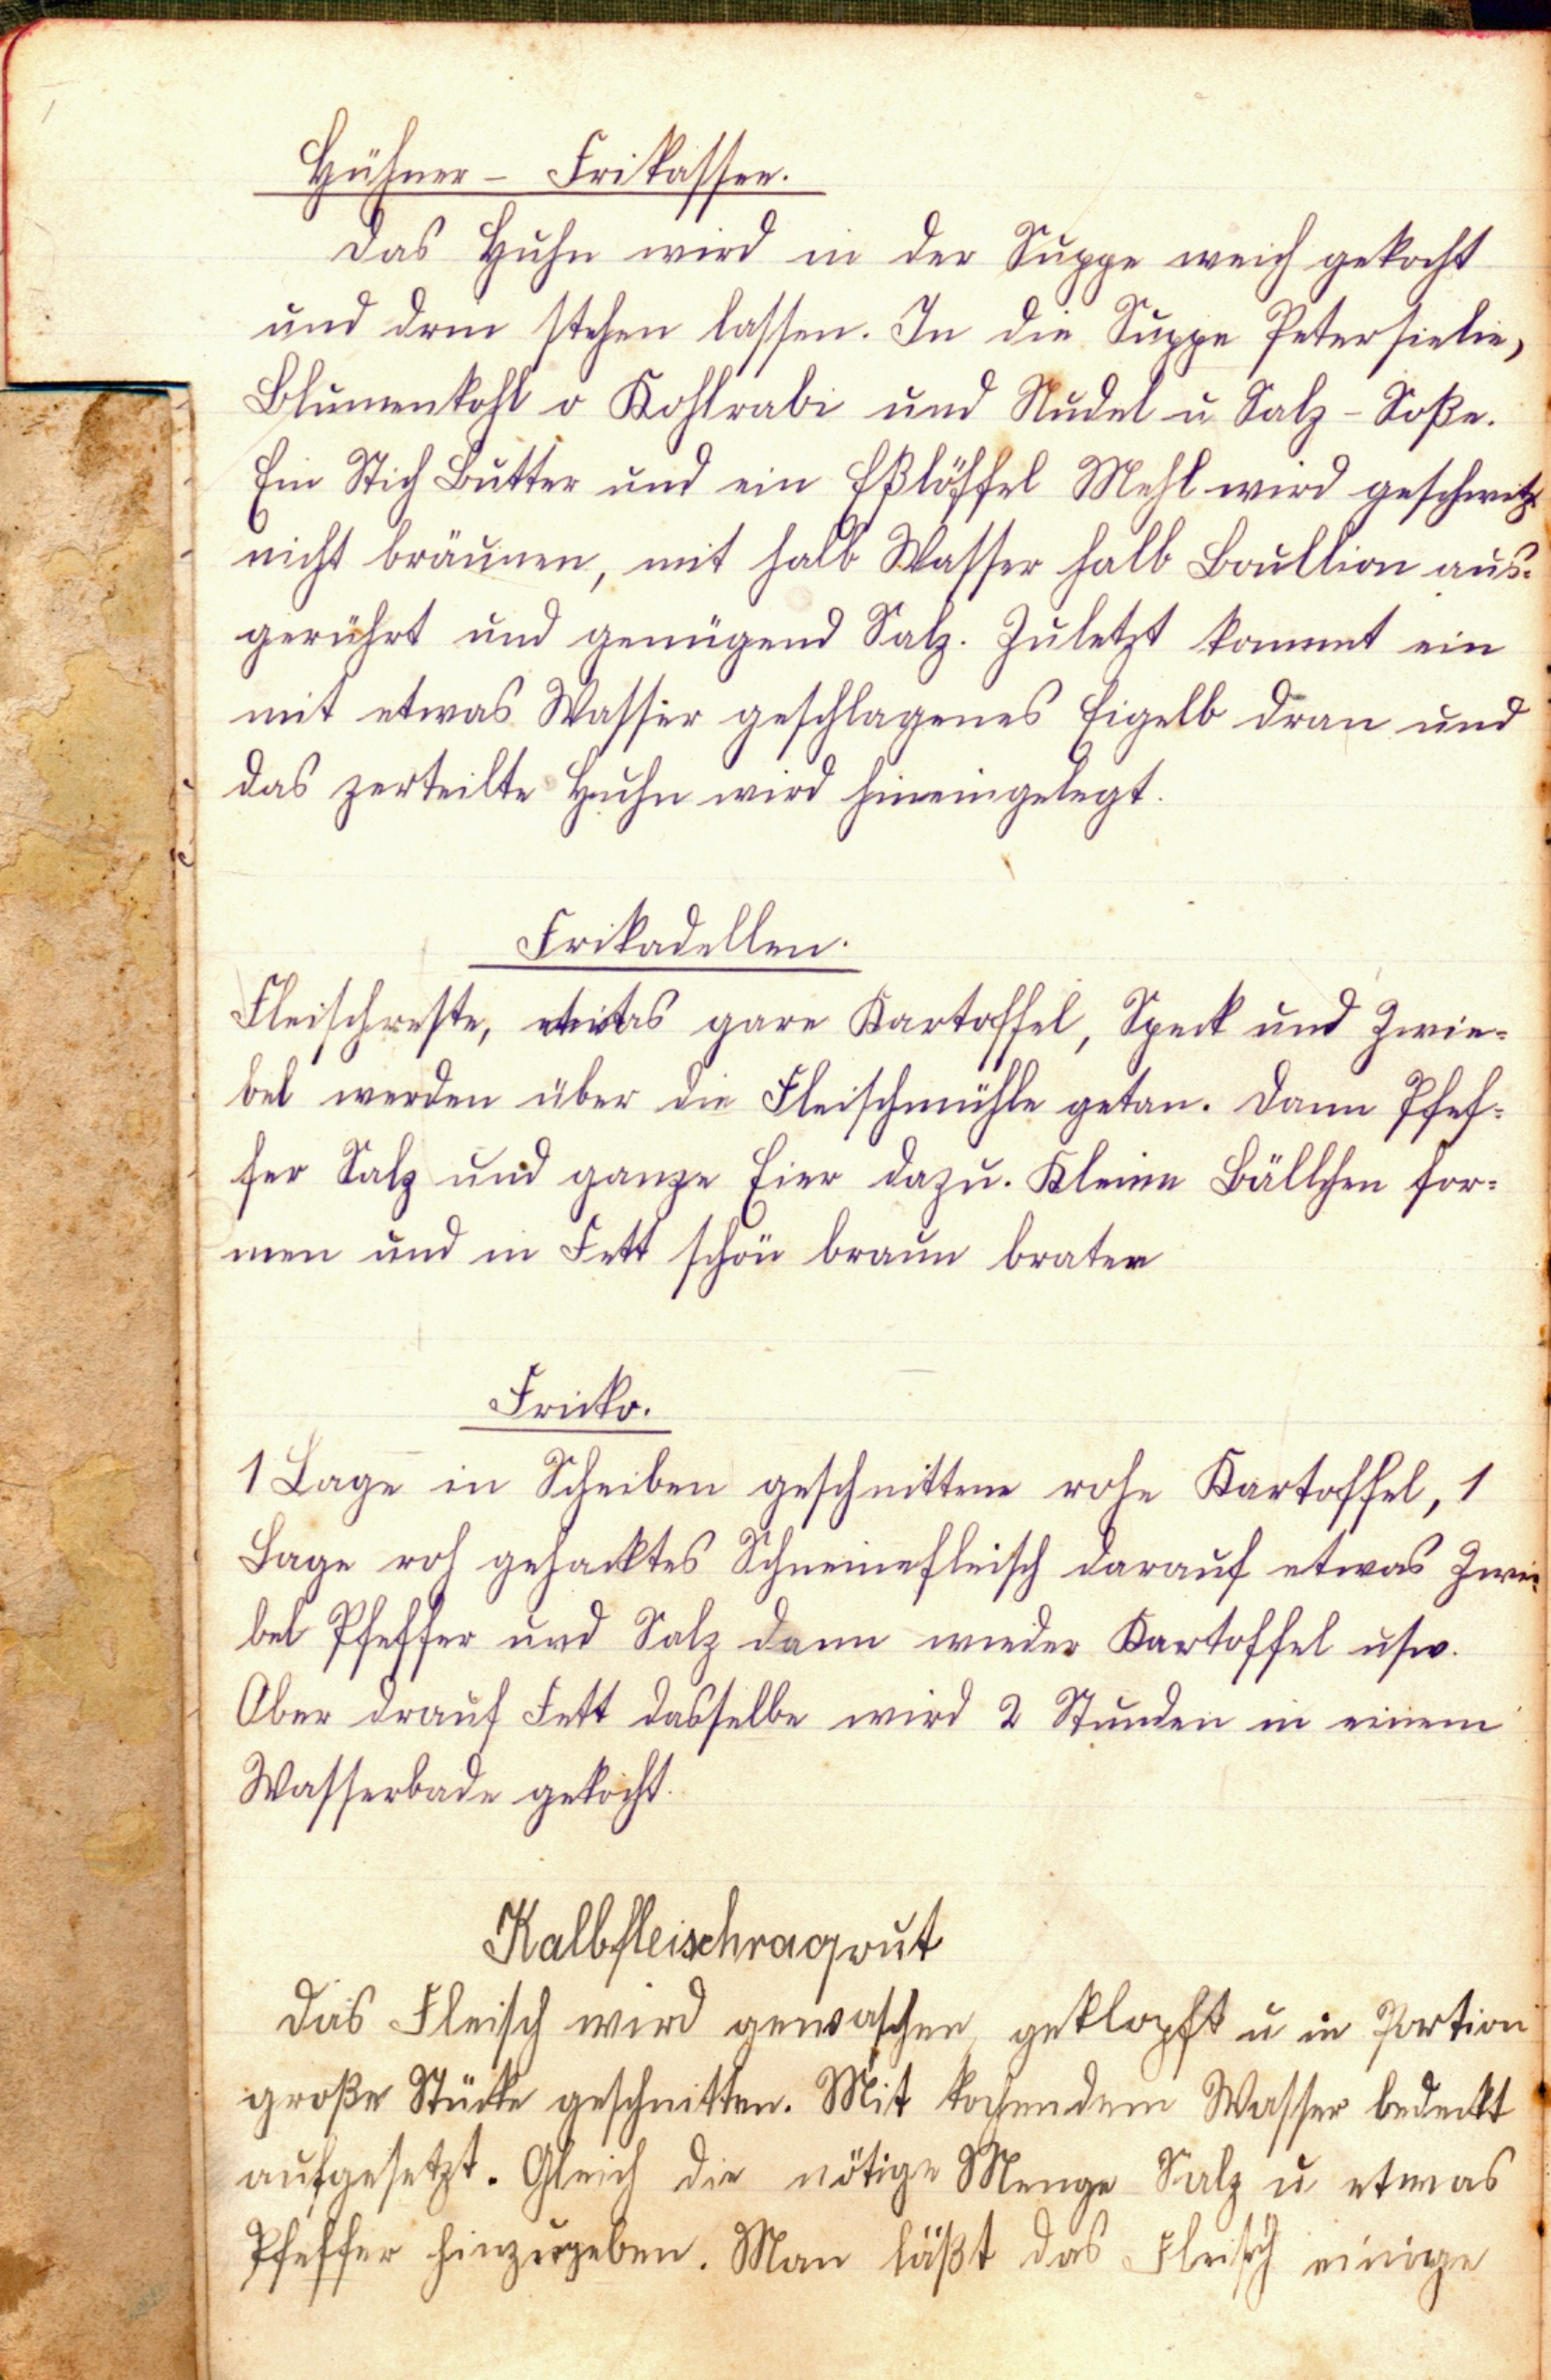 Hühner- Frikassee.
Das Huhn wird in der Suppe weich gekocht
und drin stehen lassen. In die Suppe Petersielie,
Blumenkohl o Kohlrabi und Nudel u Salz-Soße.
Ein Stich Butter und ein Eßlöffel Mehl wird geschwitzt
nicht bräunen, mit halb Wasser halb Boullion aus-
gerührt und genügend Salz. Zuletzt kommt ein
mit etwas Wasser geschlagenes Eigelb dran und
das zerteilte Huhn wird hineingelegt.
Frikadellen.
Fleischreste, etwas gare Kartoffel, Speck und Zwie-
bel werden über die Fleischmühle getan. Dann Pfef-
fer Salz und ganze Eier dazu. Kleine Bällchen for-
men und in Fett schön braun braten
Fricko.
1 Lage in Scheiben geschnittene rohe Kartoffel, 1
Lage roh gehacktes Schweinefleisch darauf etwas Zwie-
bel Pfeffer und Salz dann wieder Kartoffel usw.
Ober drauf Fett dasselbe wird 2 Stunden in einem
Wasserbade gekocht.
Kalbfleischragout
Das Fleisch wird gewaschen, geklopft u in Portion
große Stücke geschnitten. Mit kochendem Wasser bedeckt
aufgesetzt. Gleich die nötige Menge Salz u etwas
Pfeffer hinzugeben. Man läßt das Fleisch einige